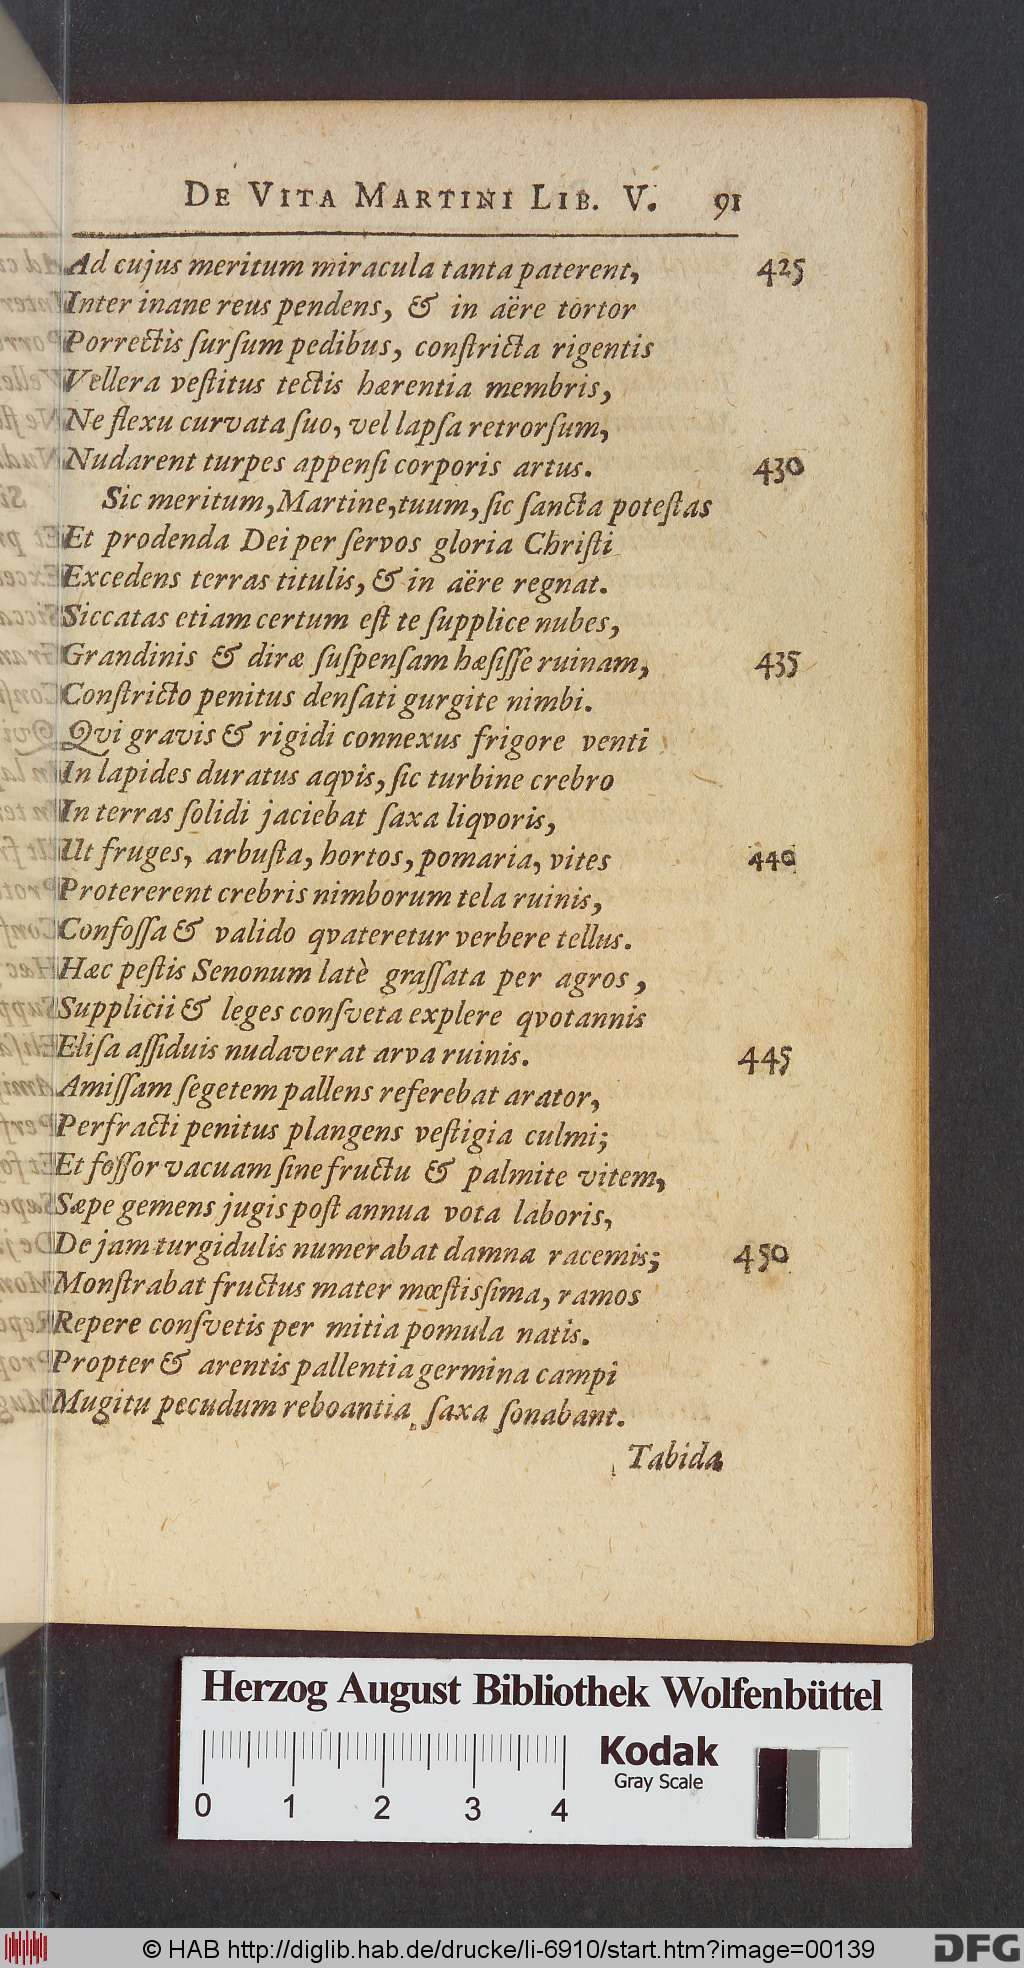 DE VITA MARTINI LIB. V. 91
Ad cujus meritum miracula tanta paterent, 425
Inter inane reus pendens, & in aëre tortor
Porrectis ſurſum pedibus, conſtricta rigentis
Vellera veſtitus tectis hærentia membris,
Ne flexu curvata ſuo, vel lapſa retrorſum,
Nudarent turpes appenſi corporis artus. 430
Sic meritum, Martine, tuum, ſic ſancta poteſtas
Et prodenda Dei per ſervos gloria Chriſti
Excedens terras titulis, & in aëre regnat.
Siccatas etiam certum eſt te ſupplice nubes,
Grandinis & diræ ſuſpenſam hæſiſſe ruinam, 435
Conſtricto penitus denſati gurgite nimbi.
Qvi gravis & rigidi connexus frigore venti
In lapides duratus aqvis, ſic turbine crebro
In terras ſolidi jaciebat ſaxa liqvoris,
Ut fruges, arbuſta, hortos, pomaria, vites 440
Protererent crebris nimborum tela ruinis,
Confoſſa & valido qvateretur verbere tellus.
Hæc peſtis Senonum latè graſſata per agros,
Supplicii & leges conſveta explere qvotannis
Eliſa aſſiduis nudaverat arva ruinis. 445
Amiſſam ſegetem pallens referebat arator,
Perfracti penitus plangens veſtigia culmi;
Et foſſor vacuam ſine fructu & palmite vitem,
Sæpe gemens jugis poſt annua vota laboris,
De jam turgidulis numerabat damna racemis; 450
Monſtrabat fructus mater mœſtiſſima, ramos
Repere conſvetis per mitia pomula natis.
Propter & arentis pallentia germina campi
Mugitu pecudum reboantia ſaxa ſonabant.
Tabida
Herzog August Bibliothek Wolfenbüttel
Kodak
Gray Scale
0 1 2 3 4
© HAB http://diglib.hab.de/drucke/li-6910/start.htm?image=00139
DFG